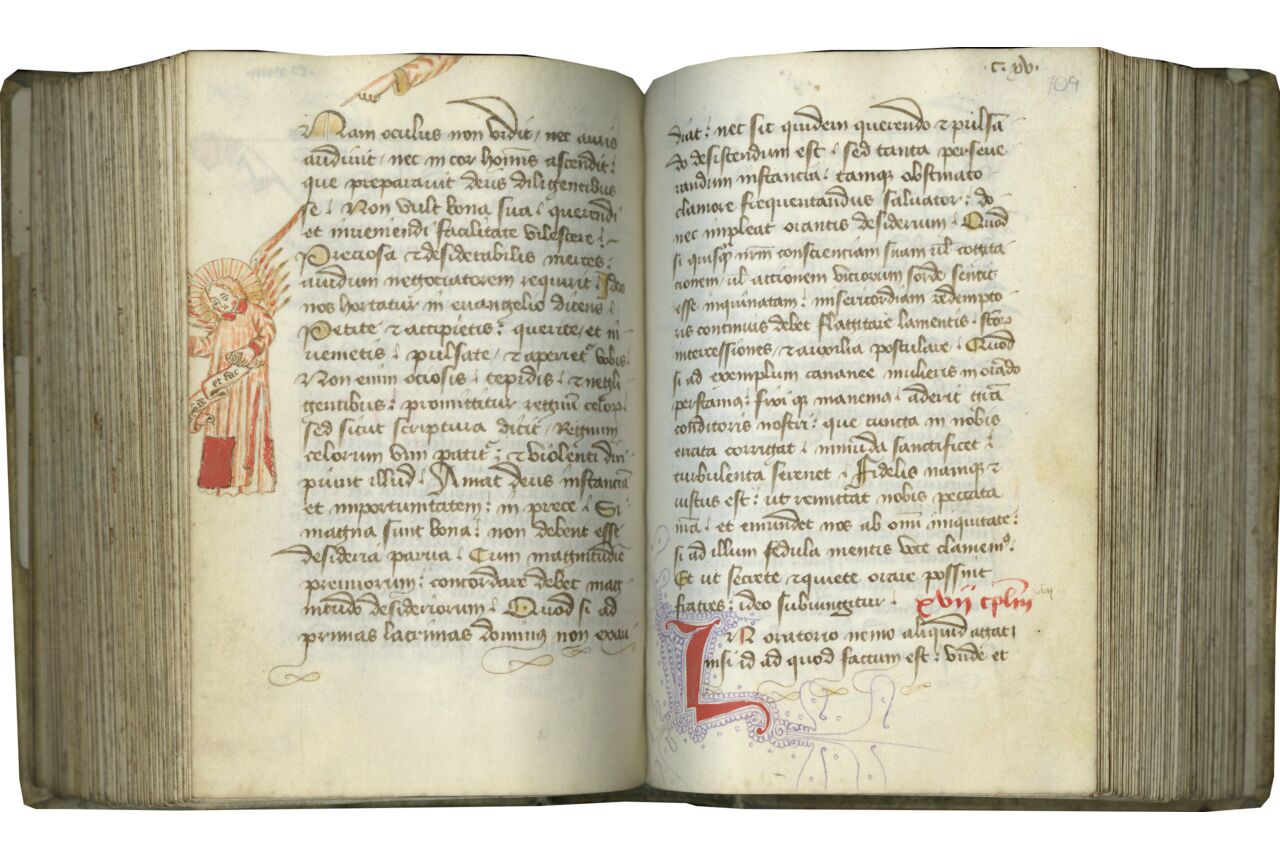 Nam oculus non vidit, nec auris
audiuit, nec in cor hoīnis ascendit:
que preparauit deus diligentibus
se. Non vult bona sua. querendi
et inueniendi facilitate vilescere.
Preciosa & desiderabilis merces:
auidum negociatorem requirit. Ideo
nos hortatur in euangelio dicens.
Petite & accipietis: querite, et in
uenietis. pulsate, & aperiet᷑ vobis.
Non enim ociosis. tepidis. & negli
gentibus: promittitur regnū celoꝝ.
sed sicut scriptura dicit, Regnum
celorum vim patit᷑: & violenti diri
piunt illud. Amat deus instanciā
et importunitatem: in prece. Si
magna sunt bona: non debent esse
desideria parua. Cum magnitudine
premiorum: concordare debet mag
nitudo desideriorum. Quod si ad
primas lacrimas dominus non exau
et fac
.c. xv. 109
diat: nec sic quidem querendo & pulsā
do desistendum est. sed tanta perseue
randum instancia. tamqꝫ obstinato
clamore frequentandus saluator: do
nec impleat orantis desiderium. Quod
si quisqꝫ nr̄m conscienciam suam ul̄ cogita
cionem, ul̄ actionem viciorum sorde sentit
esse inquinatam: misericordiam redempto
ris continuis debet flagitare lamentis. scōꝝ
intercessiones, & auxilia postulare. Quod
si ad exemplum cananee mulieris in orādo
perstamꝰ: fixi qꝫ manemꝰ. aderit gr̄a
conditoris nostri: que cuncta in nobis
errata corrigat. inmūda sanctificet.
turbulenta serenet. Fidelis namqꝫ &
iustus est: ut remittat nobis peccata
nr̄a. et emundet nos ab omni iniquitate:
si ad illum sedula mentis voce clamemꝰ.
Et ut secrete & quiete orare possint
fratres: ideo subiungitur. xvii cplm̄
IN oratorio nemo aliquid agat.
nisi id ad quod factum est: vnde et